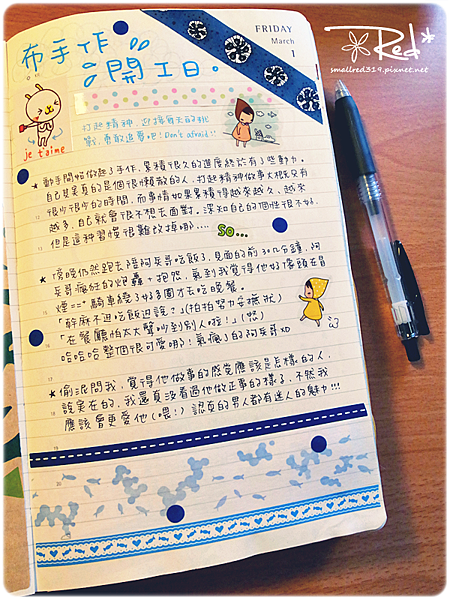 布手作
開工日。
FRIDAY
March
1
Red*
smallred319.pixnet.net
je t'aime
打起精神,迎接每天的挑
戰,勇敢追夢吧!Don't afraid!!
★動手開始做起了手作,累積很久的進度終於有了些動力。
自己其實真的是個很懶散的人,打起精神做事大概只有
很少很少的時間,而事情如果累積得越來越久、越來
越多,自己就會很不想去面對。深知自己的個性很不好,
但是這種習慣很難改掉哪....
So...
★傍晚仍然跑去陪阿兵哥吃飯了,見面的前30分鐘,阿
兵哥瘋狂的炮轟+抱怨,氣到我覺得他好像頭在冒
煙==" 騎車繞了好多圈才去吃晚餐。
「幹麻不進吃飯邊說?」(拍拍努力安撫狀)
「在餐廳怕太大聲吵到別人啦!」(怒)
哈哈哈 整個很可愛哪!氣瘋了的阿兵哥XD
★偷泥問我,覺得他做事的感覺應該是怎樣的人,
說實在的,我還真沒看過他做正事的樣子,不然我
應該會更愛他(喂!)認真的男人都有迷人的魅力!!!